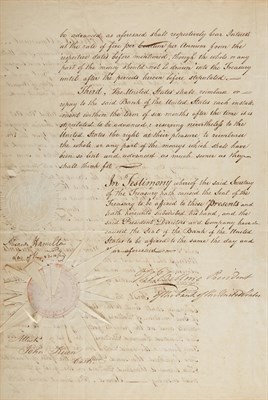 be advanced, as aforesaid shall respectively bear Interest
at the rate of five per Centum per Annum from the
respective dates before mentioned, though the whole or any
part of the money should not be drawn into the Treasury
until after the periods herein before stipulated.
Third, The United States shall reimburse or
repay to the said Bank of the United States each instal-
ment within the Term of six months after the time is
stipulated to be advanced; reserving nevertheless to the
United States the right at their pleasure, to reimburse
the whole or any part of the moneys which shall have
been so lent and advanced as much sooner as they
shall think fit.
In Testimony whereof the said Secretary
of the Treasury hath caused the Seal of the
Treasury to be affixed to these Presents and
hath hereunto subscribed his hand, and the
said President Directors and Company have
caused the Seal of the Bank of the United
States to be affixed to the same the day and
aforesaid.
Hamilton
Sec of Treasury
Willing President
of the Bank of the United States
John Kean